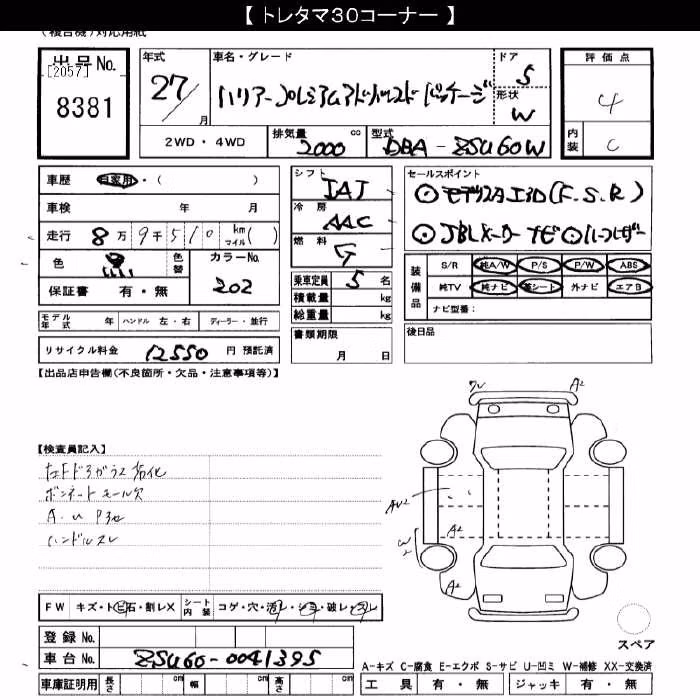 【 トレタマ30コーナー 】
(複合機)対応用紙
出品No.
[2057]
8381
年式
27/
月
車名・グレード
ハリアー プレミアムアドバンスド パッケージ
ドア
5
形状
W
評価点
4
内装
C
2WD・4WD
排気量
cc
2000
型式
DBA - ZSU60W
車歴
自家用・( )
車検
年 月
走行
8万9千510
km
マイル( )
色
黒
色替
カラーNo.
202
保証書
有・無
シフト
IAT
冷房
AAC
燃料
G
乗車定員
5名
積載量
kg
総重量
kg
セールスポイント
◎モデリスタエアロ(F.S.R)
◎JBLメーカーナビ◎ハーフレザー
装備品
S/R
純A/W
P/S
P/W
ABS
純TV
純ナビ
革シート
外ナビ
エアB
ナビ型番:
モデル年式
年
ハンドル
左・右
ディーラー・並行
書類期限
月 日
後日品
リサイクル料金
12550
円 預託済
【出品店申告欄(不良箇所・欠品・注意事項等)】
【検査員記入】
左Fドアガラス劣化
ボンネットモール欠
A・U P3他
ハンドルスレ
A2
AU2
A2
W2
A2
FW
キズ・トビ石・割レX
シート内装
コゲ・穴・汚レ・シミ・破レ・スレ
スペア
登録No.
車台No.
ZSU60-0041395
A-キズ C-腐食 E-エクボ S-サビ U-凹ミ W-補修 XX-交換済
車庫証明用
長さ
cm
幅
cm
高さ
cm
工具
有・無
ジャッキ
有・無